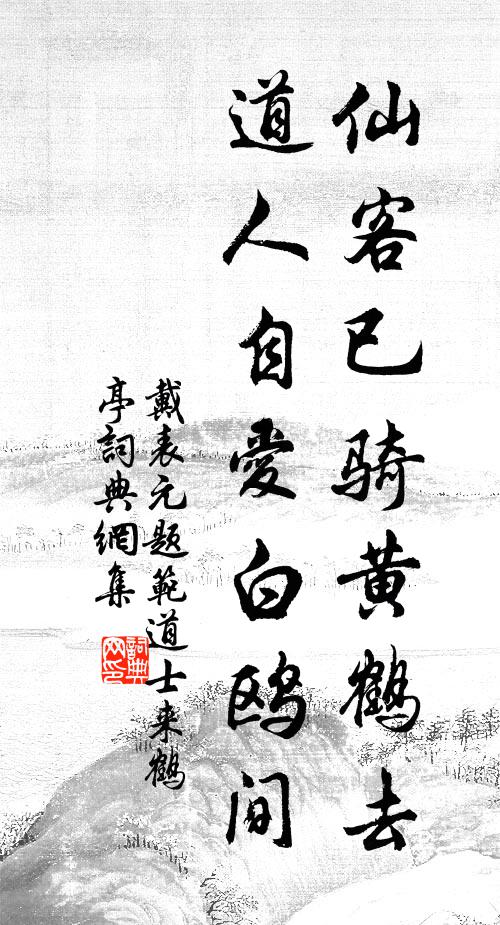 仙客已骑黄鹤去
道人自愛白鸥间
戴表元题範道士来鶴
亭詞典網集
詞典
网印